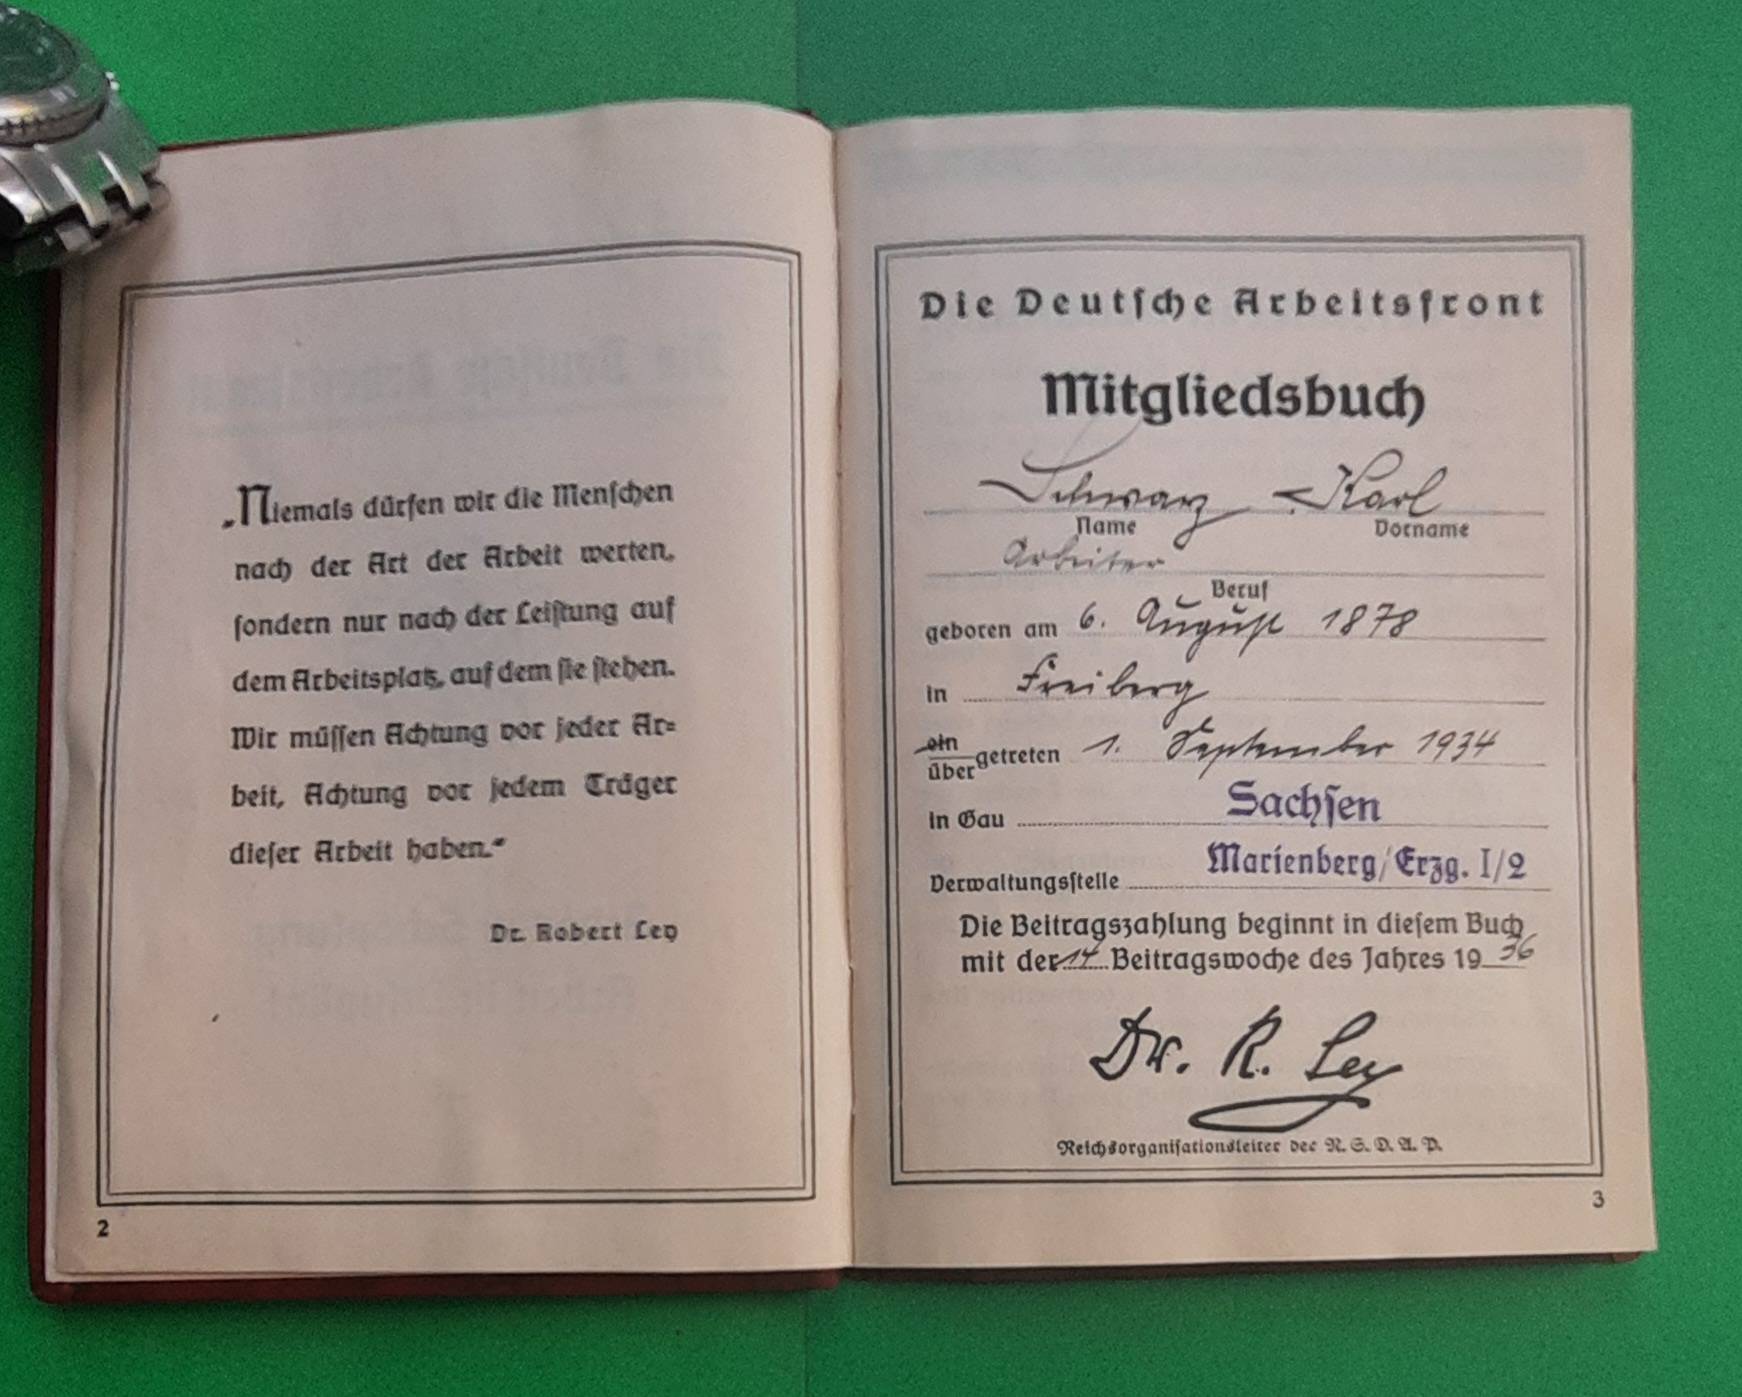 „Niemals dürfen wir die Menſchen
nach der Art der Arbeit werten,
ſondern nur nach der Leiſtung auf
dem Arbeitsplatz, auf dem ſie ſtehen.
Wir müſſen Achtung vor jeder Ar=
beit, Achtung vor jedem Träger
dieſer Arbeit haben.“
Dr. Robert Ley
2
Die Deutſche Arbeitsfront
Mitgliedsbuch
Schwarz Karl
Name Vorname
Arbeiter
Beruf
geboren am 6. August 1878
in Freiberg
ein
über getreten 1. September 1934
in Gau Sachſen
Verwaltungsſtelle Marienberg/Erzg. I/2
Die Beitragszahlung beginnt in dieſem Buch
mit der 14. Beitragswoche des Jahres 1936
Dr. R. Ley
Reichsorganiſationsleiter der N. S. D. A. P.
3